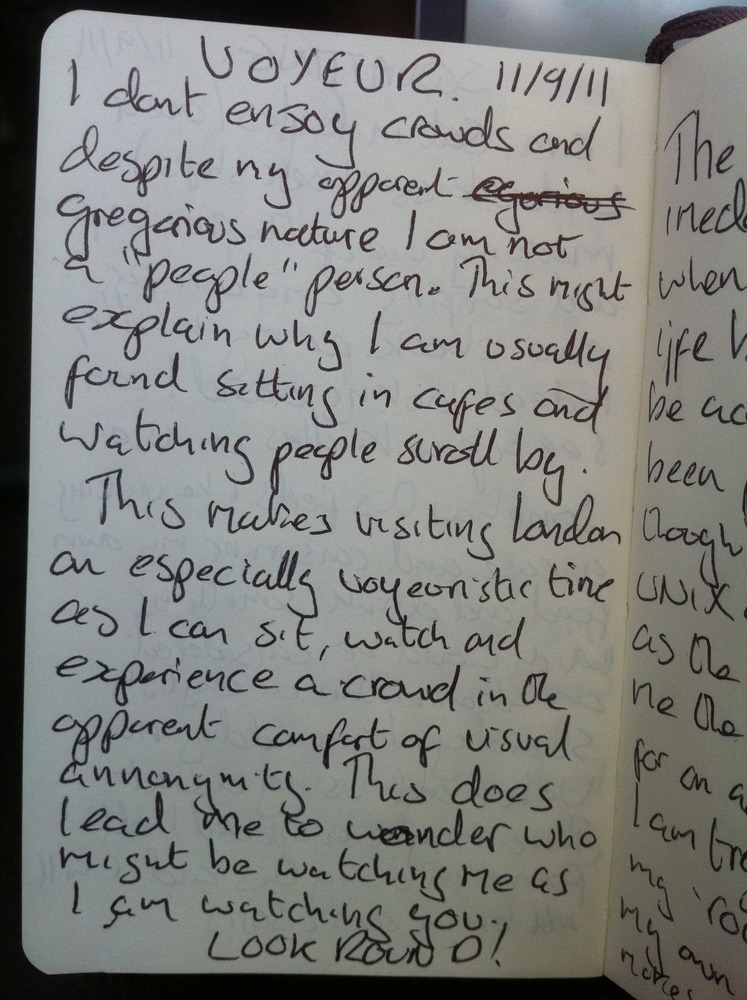 VOYEUR. 11/9/11
I dont enjoy crowds and
despite my apparent egarious
gregarious nature I am not
a "people" person. This might
explain why I am usually
found sitting in cafes and
watching people scroll by.
This makes visiting London
an especially voyeuristic time
as I can sit, watch and
experience a crowd in the
apparent comfort of visual
annonymity. This does
lead me to wonder who
might be watching me as
I am watching you.
LOOK ROUND!
The
when
life
be
been
though
UNIX
as the
me the
for an
I am
my
my own
notes